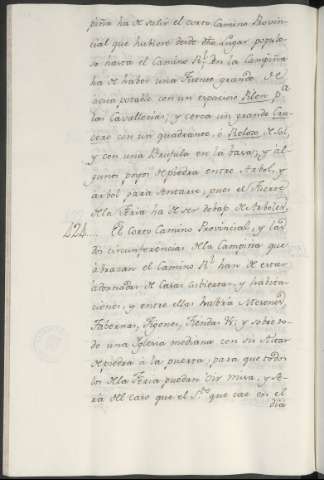 piña ha de salir el corto Camino Provin-
cial que hubiere desde dho Lugar popula-
so hasta el Camino Rl. En la Campiña
ha de haber una Fuente grande de
agua potable con un espacioso Pilon pa.
las Cavallerias, y cerca un grande Cru-
cero con un quadrante, ò Relox de Sol,
y con una Brujula en la basa, y al-
gunos poyos de piedra entre Arbol, y
arbol para sentarse, pues el Fuerte
de la Feria ha de ser debaxo de Arboles.
424.... El Corto Camino Provincial, y las
dos circunferencias de la Campiña que
abrazan el Camino Rl. han de estar
adornadas de Casas cubiertas, y habita-
ciones, y entre ellas habrà Mesones,
Tabernas, Figones, Tiendas &c, y sobre to-
do una Iglesia mediana con su Altar
de piedra à la puerta, para que todos
los de la Feria puedan oir Misa, y se-
rà del caso que el Sto. que cae en el
dia